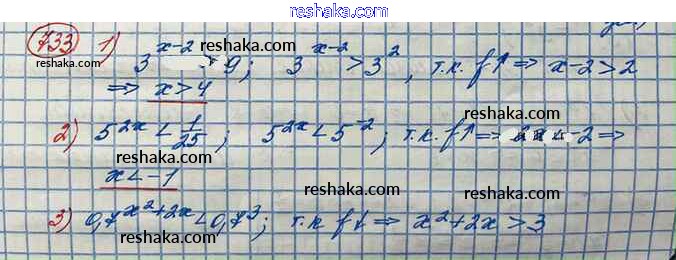 reshaka.com
733 1) reshaka.com
3^{x-2} > 9; 3^{x-2} > 3^2, т.к. f↑ ⇒ x-2>2
⇒ x>4 reshaka.com
reshaka.com
2) 5^{2x} < 1/25; 5^{2x} < 5^{-2}; т.к. f↑ ⇒ 2x < -2 ⇒
x < -1 reshaka.com
reshaka.com
3) 0,7^{x^2+2x} < 0,7^3; т.к f↓ ⇒ x^2+2x > 3
reshaka.com